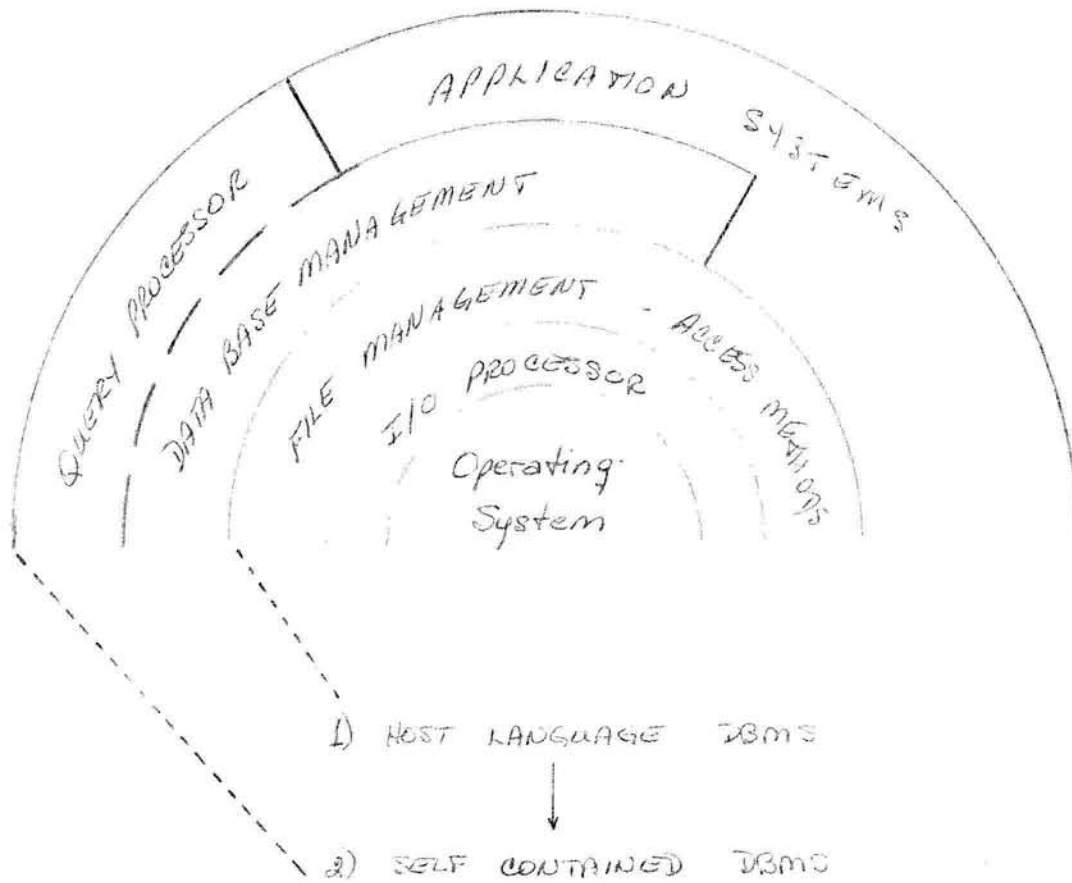 APPLICATION SYSTEMS
QUERY PROCESSOR
DATA BASE MANAGEMENT
FILE MANAGEMENT - ACCESS METHODS
I/O PROCESSOR
Operating
System
1) HOST LANGUAGE DBMS
2) SELF CONTAINED DBMS